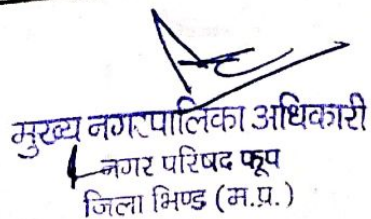 मुख्य नगरपालिका अधिकारी
नगर परिषद फूप
जिला भिण्ड (म.प्र.)